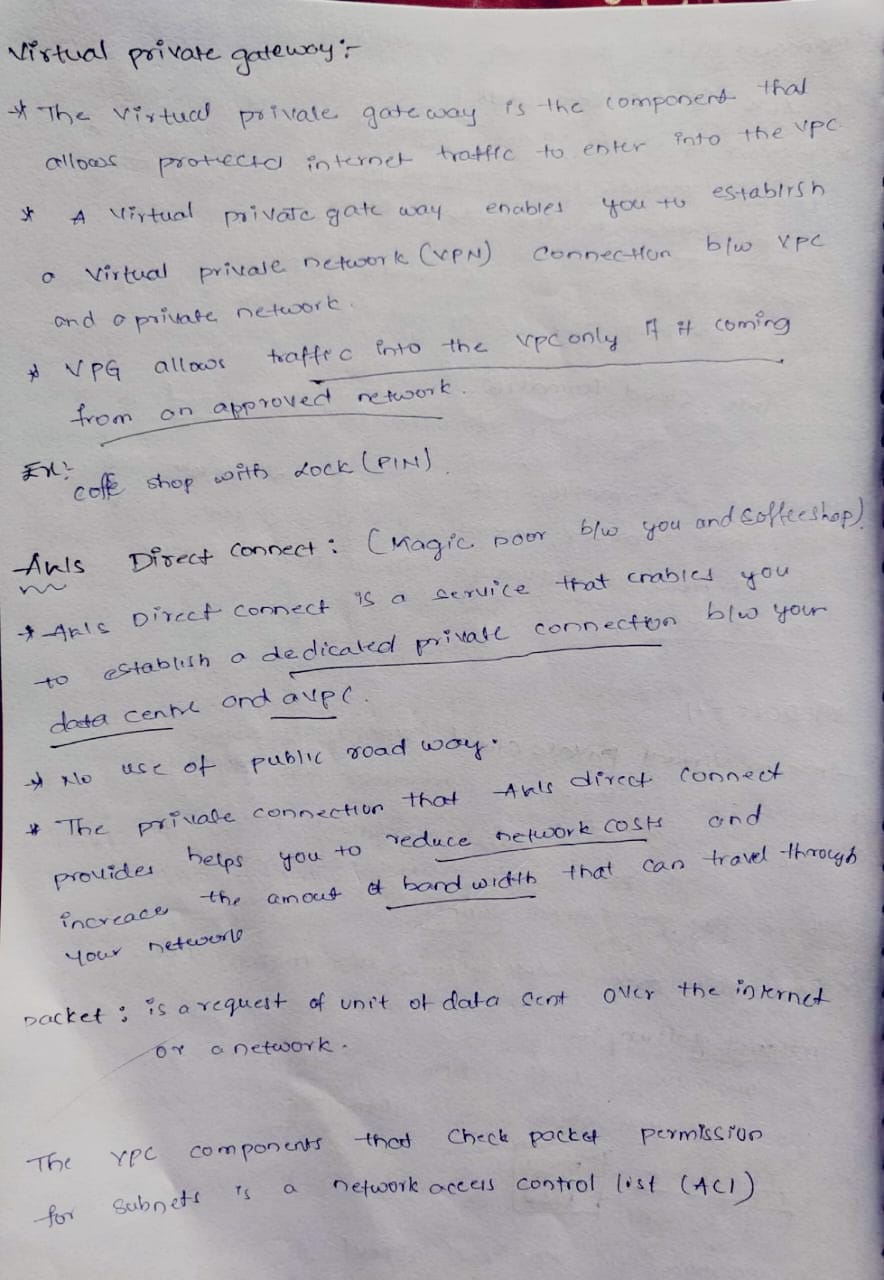 Virtual private gateway:-
* The virtual private gateway is the component that
allows protected internet traffic to enter into the VPC
* A virtual private gate way enables you to establish
a virtual private network (VPN) connection b/w VPC
and a private network.
* VPG allows traffic into the vpc only if it coming
from an approved network.
Ex:- coffe shop with Lock (PIN).
AWS Direct connect: (Magic Door b/w you and coffeeshop)
* AWS Direct connect is a service that enables you
to establish a dedicated private connection b/w your
data centre and a vpc.
* No use of public road way.
* The private connection that AWS direct connect
provides helps you to reduce network costs and
increace the amout of band width that can travel through
your network
packet: is a request of unit of data sent over the internet
or a network.
The VPC components that check packet permission
for subnets is a network access control list (ACl)